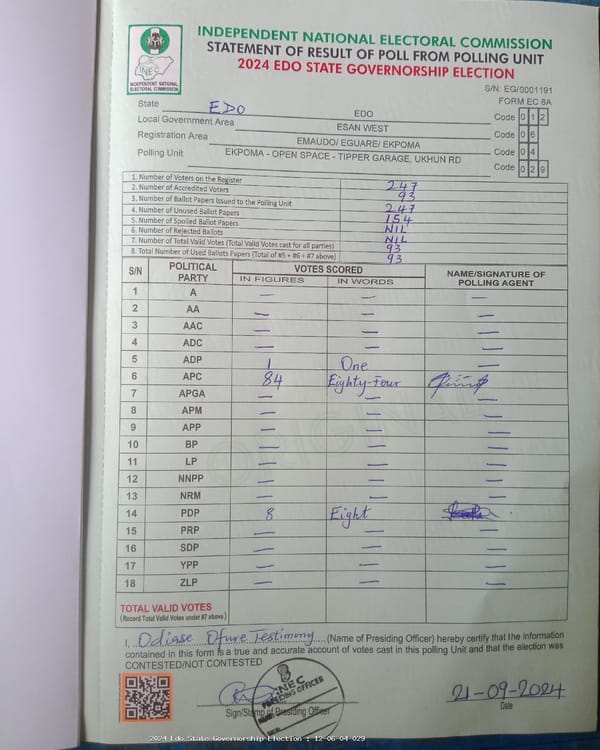 INDEPENDENT NATIONAL ELECTORAL COMMISSION
STATEMENT OF RESULT OF POLL FROM POLLING UNIT
2024 EDO STATE GOVERNORSHIP ELECTION
INEC
INDEPENDENT NATIONAL ELECTORAL COMMISSION
S/N: EG/0001191
FORM EC 8A
State EDO EDO Code 012
Local Government Area ESAN WEST Code 06
Registration Area EMAUDO/ EGUARE/ EKPOMA Code 04
Polling Unit EKPOMA - OPEN SPACE - TIPPER GARAGE, UKHUN RD Code 029
1. Number of Voters on the Register 247
2. Number of Accredited Voters 93
3. Number of Ballot Papers Issued to the Polling Unit 247
4. Number of Unused Ballot Papers 154
5. Number of Spoiled Ballot Papers NIL
6. Number of Rejected Ballots NIL
7. Number of Total Valid Votes (Total Valid Votes cast for all parties) 93
8. Total Number of Used Ballots Papers (Total of #5 + #6 + #7 above) 93
S/N POLITICAL PARTY VOTES SCORED NAME/SIGNATURE OF POLLING AGENT
IN FIGURES IN WORDS
1 A — — —
2 AA — — —
3 AAC — — —
4 ADC — — —
5 ADP 1 One —
6 APC 84 Eighty-Four
7 APGA — — —
8 APM — — —
9 APP — — —
10 BP — — —
11 LP — — —
12 NNPP — — —
13 NRM — — —
14 PDP 8 Eight
15 PRP — — —
16 SDP — — —
17 YPP — — —
18 ZLP — — —
TOTAL VALID VOTES
(Record Total Valid Votes under #7 above)
I, Odiase Ofure Testimony (Name of Presiding Officer) hereby certify that the information
contained in this form is a true and accurate account of votes cast in this polling Unit and that the election was
CONTESTED/NOT CONTESTED
INEC
PRESIDING OFFICER
Sign/Stamp of Presiding Officer
21-09-2024
Date
2024 Edo State Governorship Election : 12-06-04-029